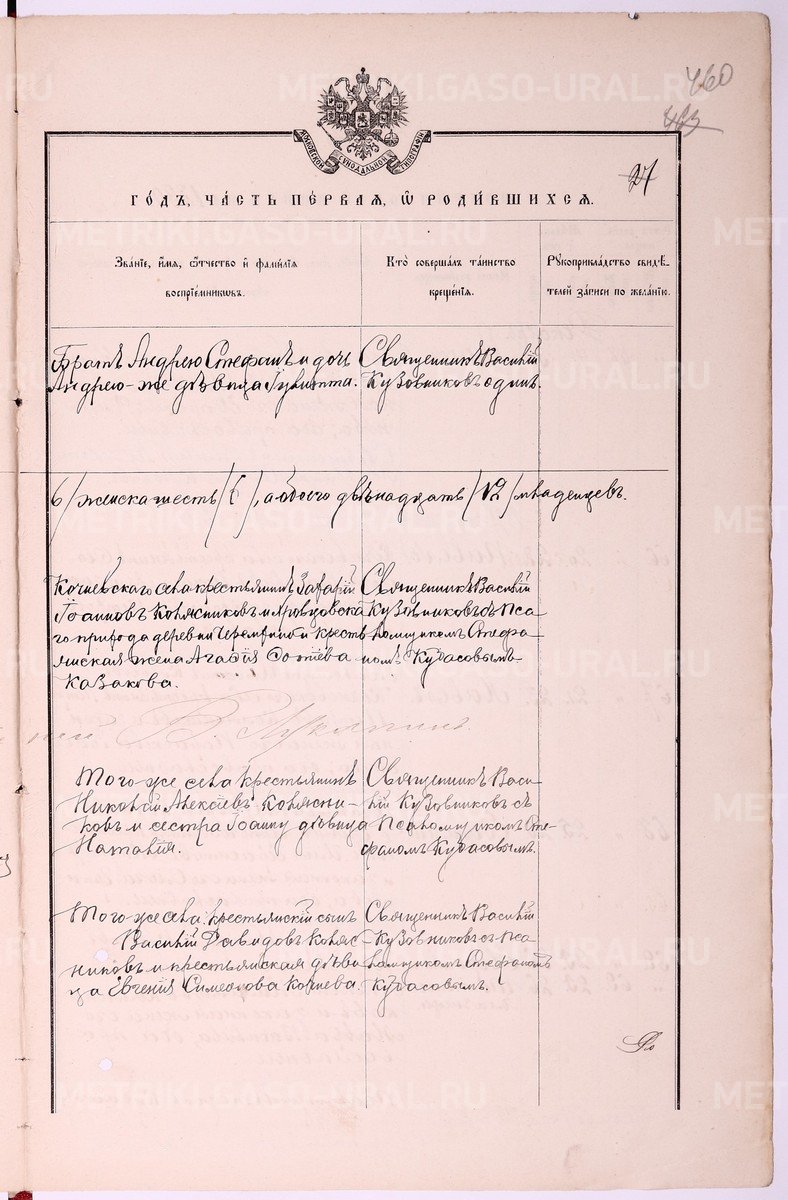 460
463
МОСКОВСКОЙ СѴНОДАЛЬНОЙ ТИПОГРАФІИ
27
ГО́ДЪ, ЧА́СТЬ ПЕ́РВАЯ, Ѿ РОДИ́ВШИХСЯ.
Зва́ніе, и́мя, ѻ́тчество и҆ фами́лія
воспріе́мниковъ.
Кто̀ соверша́лъ та́инство
креще́нія.
Рꙋкоприкла́дство свидѣ́-
телей за́писи по жела́нію.
Братъ Андрею Стефанъ и дочь
Андрею-же дѣвица Іулитта.
Священникъ Василій
Кузовниковъ одинъ.
6/ женска шесть /6/, а обоего двѣнадцать /12/ младенцевъ.
Кочневскаго села крестьянинъ Захарій
Іоанновъ Колясниковъ и
го прихода деревни крестъ
янская жена Агафія
Казакова.
Священникъ Василій
Кузовниковъ съ Пса
ломщикомъ Стефа-
номъ Кудасовымъ
В.
Того-же села крестьянинъ
Николай Алексѣевъ Колясни-
ковъ и сестра Іоанну дѣвица
Наталія.
Священникъ Васи-
лій Кузовниковъ съ
Псаломщикомъ Сте-
фаномъ Кудасовымъ.
Того же села крестьянскій сынъ
Василій Давидовъ Коляс-
никовъ и крестьянская дѣви
ца Евгенія Симеонова Корнева.
Священникъ Василій
Кузовниковъ съ Пса
ломщикомъ Стефаномъ
Кудасовымъ.
METRIKI.GASO-URAL.RU